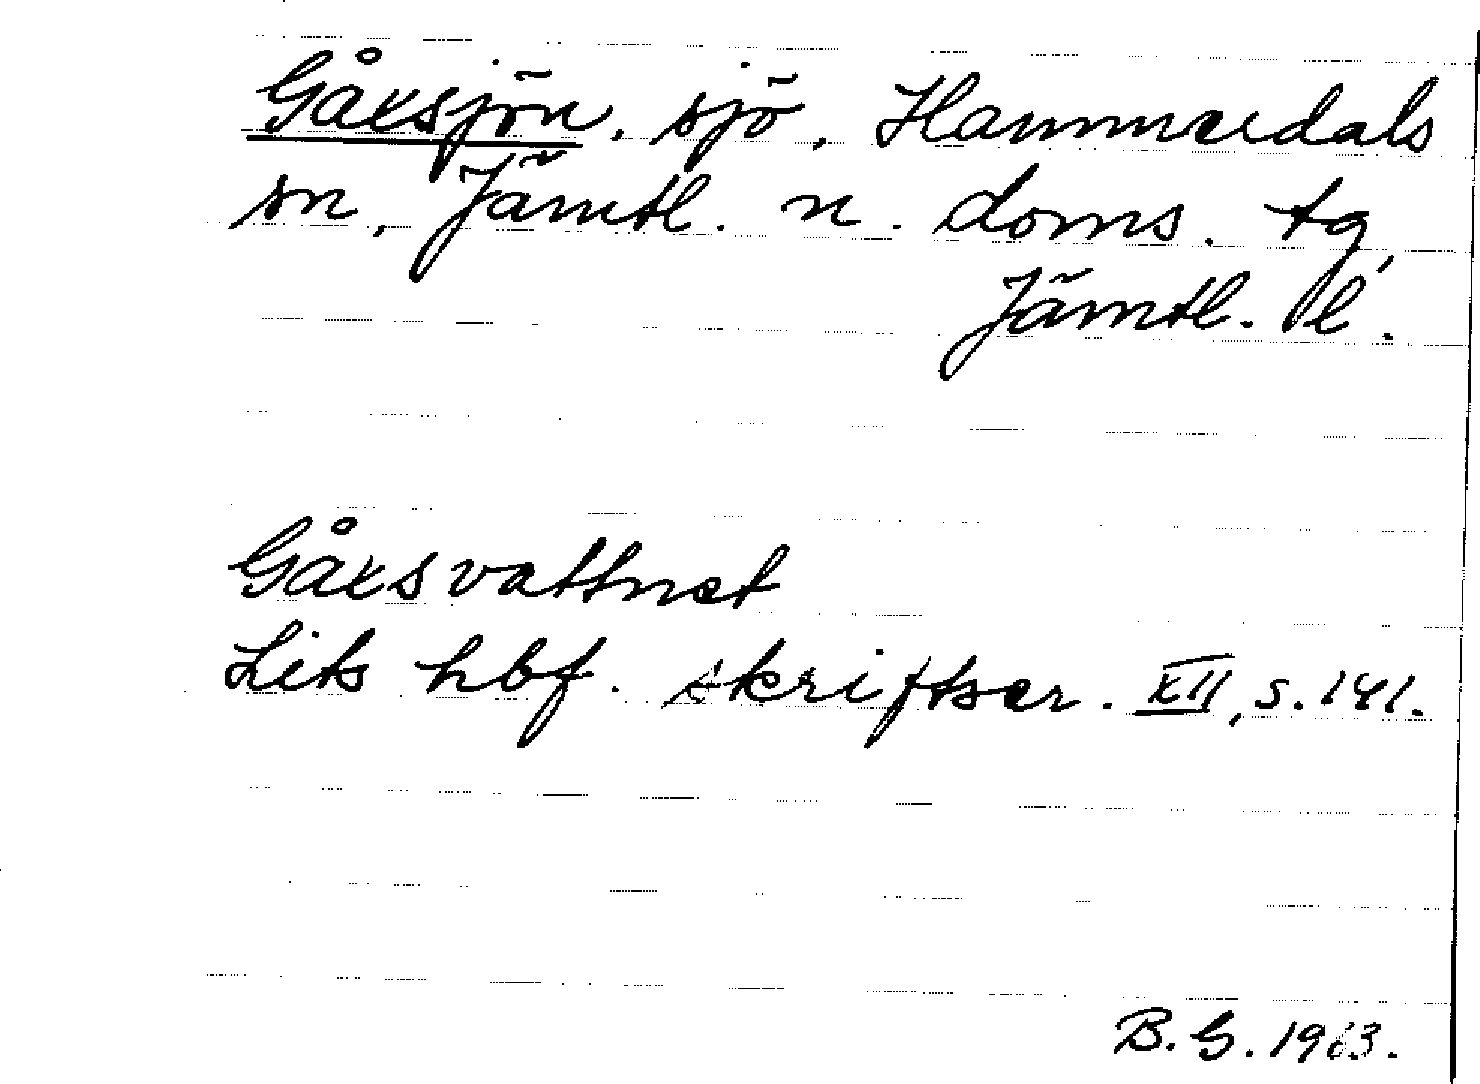 Gåxsjön, sjö, Hammerdals
sn, Jämtl. n. doms. tg,
Jämtl. l.
Gåxsvattnet
Lits hbf. skriftser. XII, s. 141.
B. G. 1963.